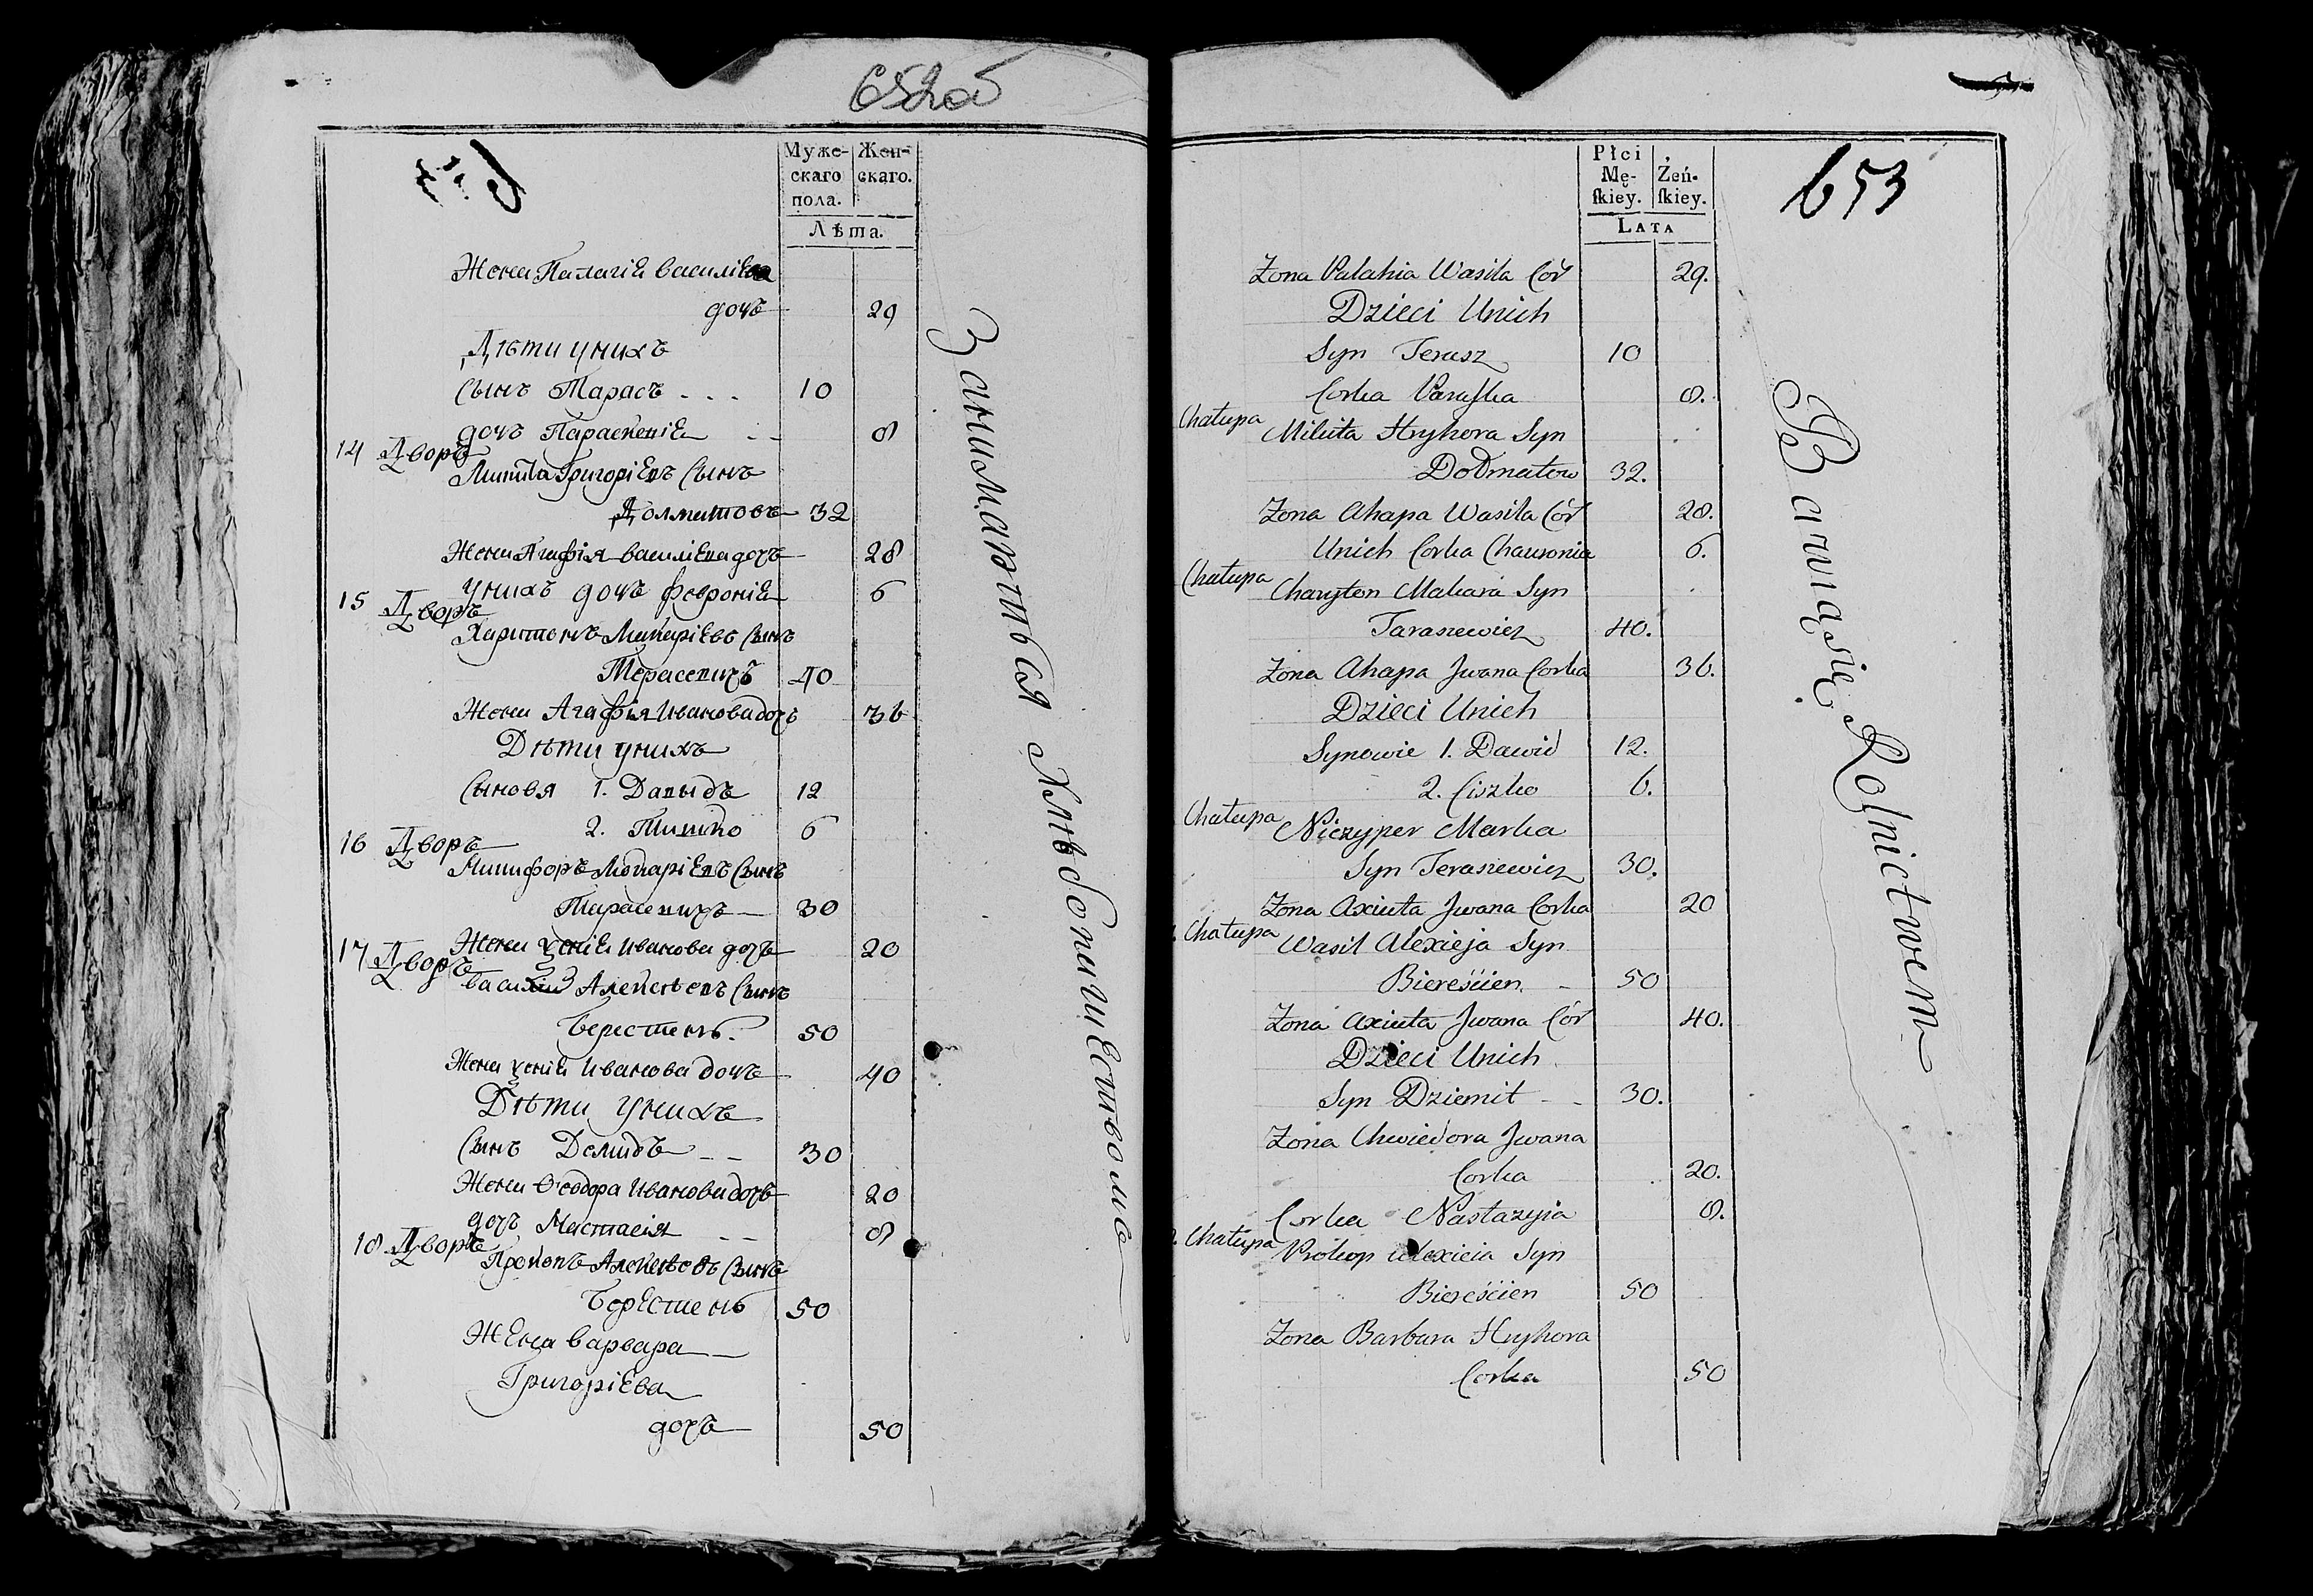 652об
Муже- Жен-
скаго скаго.
пола.
Лѣта.
Жена Палагія василіева
дочь 29
Дѣти унихъ
Сынъ Тарасъ - - - 10
дочь Параскевія - - 8
14 Дворъ
Микита Григоріевъ Сынъ
Долматовъ 32
Жена Агафія василіева дочь 28
унихъ дочь февронія 6
15 Дворъ
Харитонъ Макаріевъ Сынъ
Терасевичъ 40
Жена Агафія Иванова дочь 36
Дѣти унихъ
Сыновя 1. Давыдъ 12
2. Тишко 6
16 Дворъ
Никифоръ Макаріевъ Сынъ
Тарасевичъ 30
17 Дворъ
Жена Ѯенія Иванова дочь 20
василій Алексѣевъ Сынъ
Берестень. 50
Жена Ѯенія Иванова дочь 40
Дѣти унихъ
Сынъ Демидъ - - 30
Жена Ѳеодора Иванова дочь 20
дочь Настасія - - 8
18 Дворъ
Прокопъ Алексѣевъ Сынъ
Берестень 50
Жена варвара
Григоріева
дочь 50
Занимаются хлѣбопашествомъ
653
Płci
Mę- Żeń-
ſkiey. ſkiey.
LATA
Zona Palahia Wasila Cór 29.
Dzieci Unich
Syn Terasz 10
Corka Paraſka 8.
Chałupa
Mikita Hryhora Syn
Dołmatow 32.
Zona Ahapa Wasila Cór 28.
Unich Corka Chauronia 6.
Chałupa
Charyton Makara Syn
Taraszewicz 40.
Zona Ahapa Jwana Corka 36.
Dzieci Unich
Synowie 1. Dawid 12.
2. Ciszko 6.
Chałupa
Niczyper Marka
Syn Teraszewicz 30.
Zona Axiuta Jwana Corka 20
Chałupa
Wasil Alexieja Syn
Biereścien - 50
Zona Axiuta Jwana Cór 40.
Dzieci Unich
Syn Dziemit - - 30.
Zona Chwiedora Jwana
Corka 20.
Corka Nastazyia 8.
Chałupa
Prokop Alexieia Syn
Biereścien 50
Zona Barbara Hryhora
Corka 50
Bawią się Rolnictwem